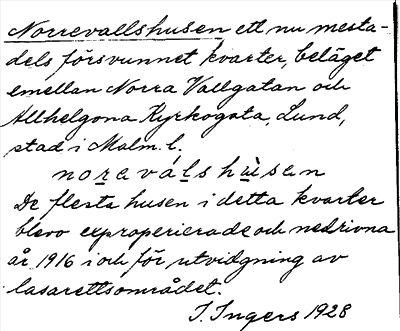 Norrevallshusen ett nu mesta-
dels försvunnet kvarter, beläget
emellan Norra Vallgatan och
Allhelgona Kyrkogata, Lund,
stad i Malm. l.
noreválshùsen
De flesta husen i detta kvarter
blevo exproperierade och nedrivna
år 1916 i och för utvidgning av
lasarettsområdet.
I. Ingers 1928